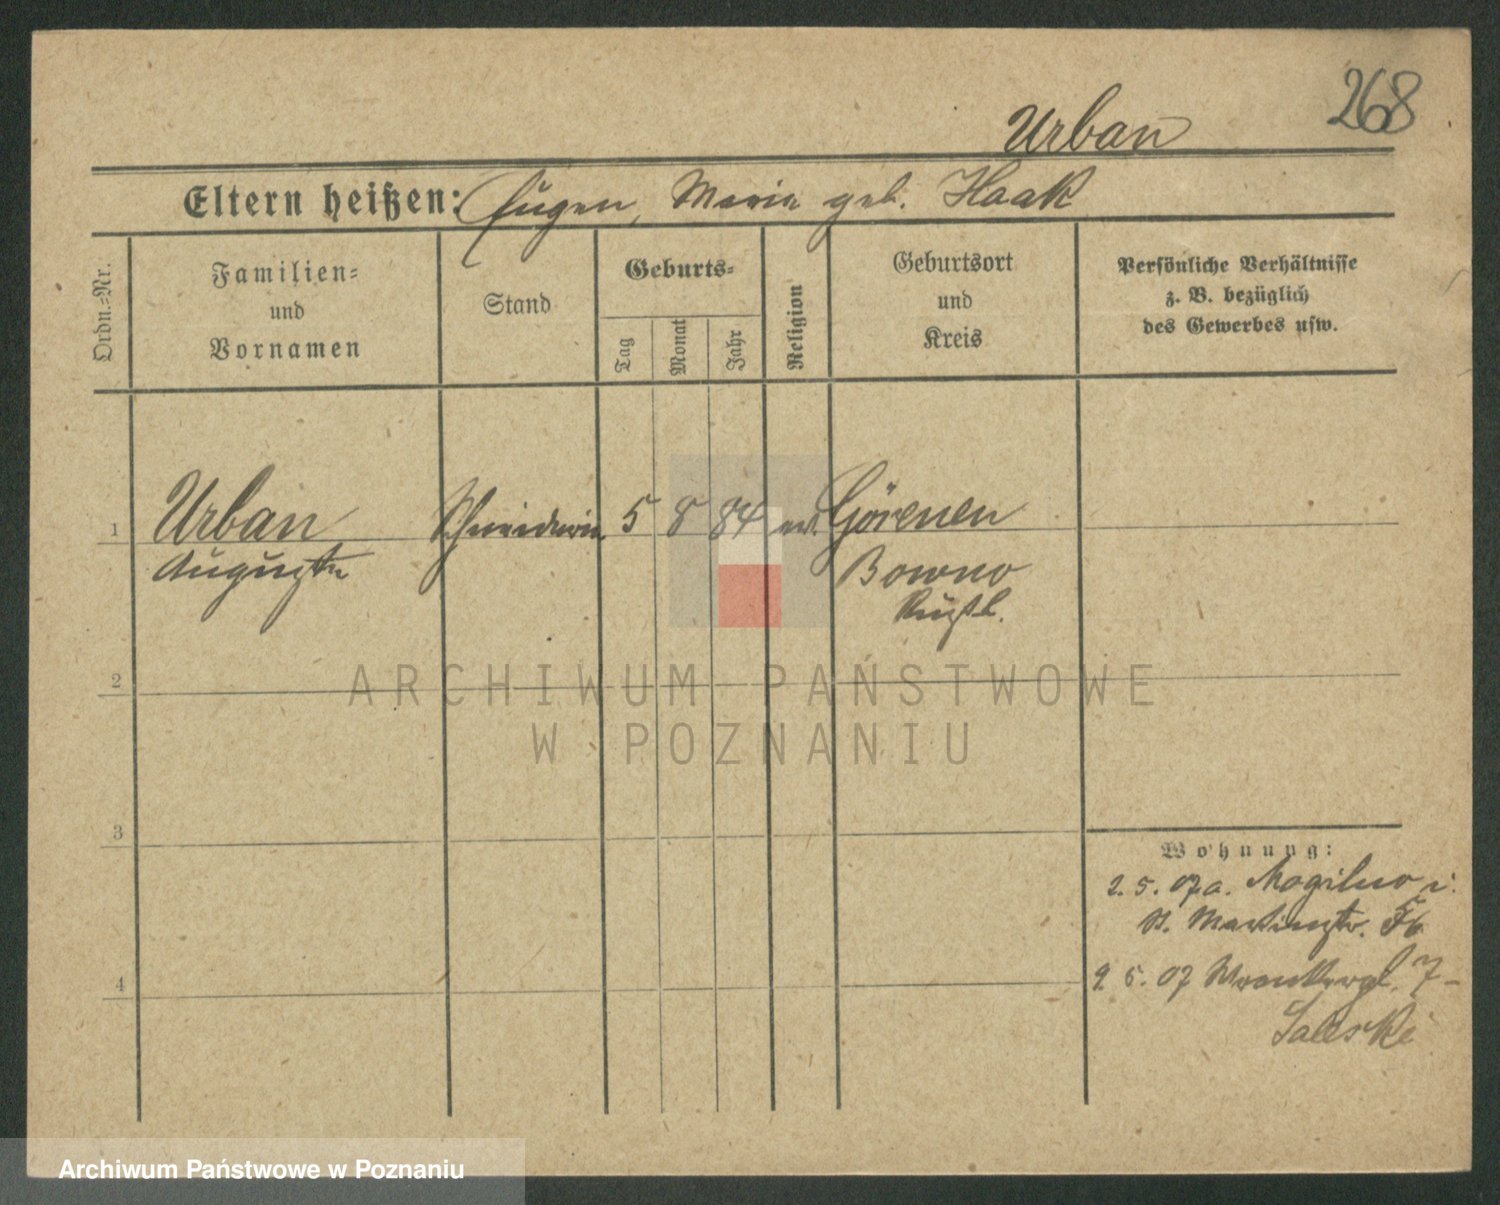 268
Urban
Eltern heißen: Eugen, Marie geb. Haak
Ordn.-Nr.
Familien-
und
Vornamen
Stand
Geburts-
Tag
Monat
Jahr
Religion
Geburtsort
und
Kreis
Persönliche Verhältnisse
z. B. bezüglich
des Gewerbes usw.
1 Urban Schneiderin 5 8 84 ev.
Auguste Bowno
Rußl.
2
3
4
Wohnung:
2. 5. 07 a. Mogilno i.
St. Martinstr.
9. 5. 07 Wronkerpl. 7
Saleski
ARCHIWUM PAŃSTWOWE
W POZNANIU
Archiwum Państwowe w Poznaniu